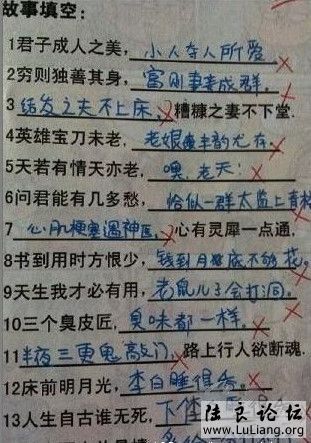 故事填空:
1君子成人之美,小人夺人所爱 ×
2穷则独善其身,富则妻妾成群。×
3结发之夫不上床,糟糠之妻不下堂.
4英雄宝刀未老,老娘风韵尤存。×
5天若有情天亦老,噢,老天! ×
6问君能有几多愁,恰似一群太监上青楼
7心肌梗塞遇神医,心有灵犀一点通,
8书到用时方恨少,钱到月底不够花。×
9天生我才必有用,老鼠儿子会打洞。×
10三个臭皮匠,臭味都一样。×
11半夜三更鬼敲门,路上行人欲断魂.
12床前明月光,李白睡得香。×
13人生自古谁无死,
陆良论坛
www.LuLiang.org